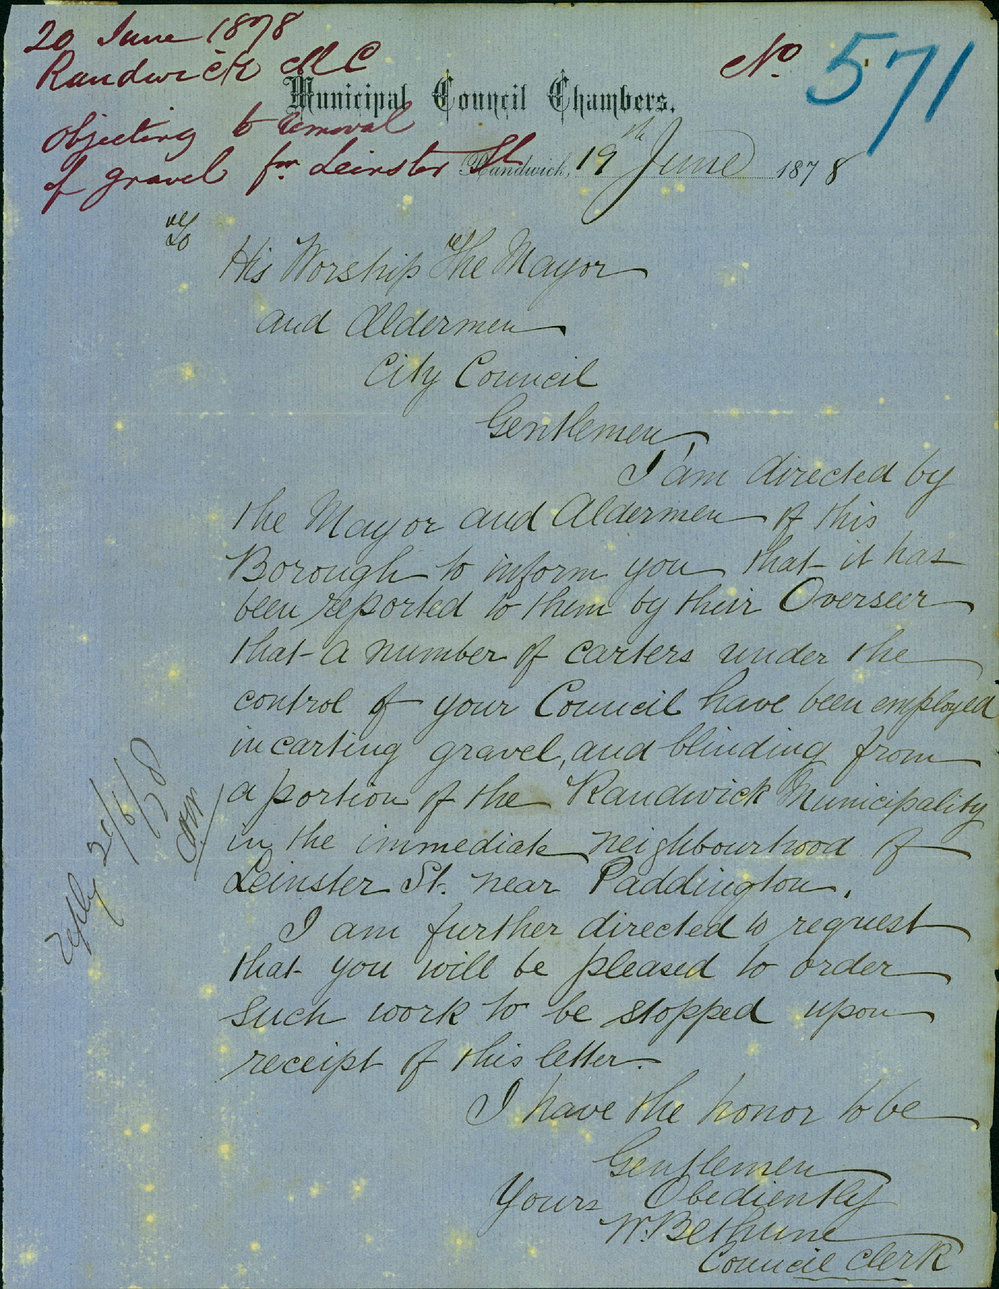 20 June 1878
Randwick M C
objecting to removal
of gravel fm Leinster St
No 571
Municipal Council Chambers.
Randwick, 19th June 1878
To
His Worship The Mayor
and Aldermen
City Council
Gentlemen
I am directed by
the Mayor and Aldermen of this
Borough to inform you that it has
been reported to them by their Overseer
that a number of carters under the
control of your Council have been employed
in carting gravel, and blinding from
a portion of the Randwick Municipality
in the immediate neighbourhood of
Leinster St. near Paddington.
I am further directed to request
that you will be pleased to order
such work to be stopped upon
receipt of this letter.
I have the honor to be
Gentlemen
Yours Obediently
W. Bethune
Council Clerk
reply